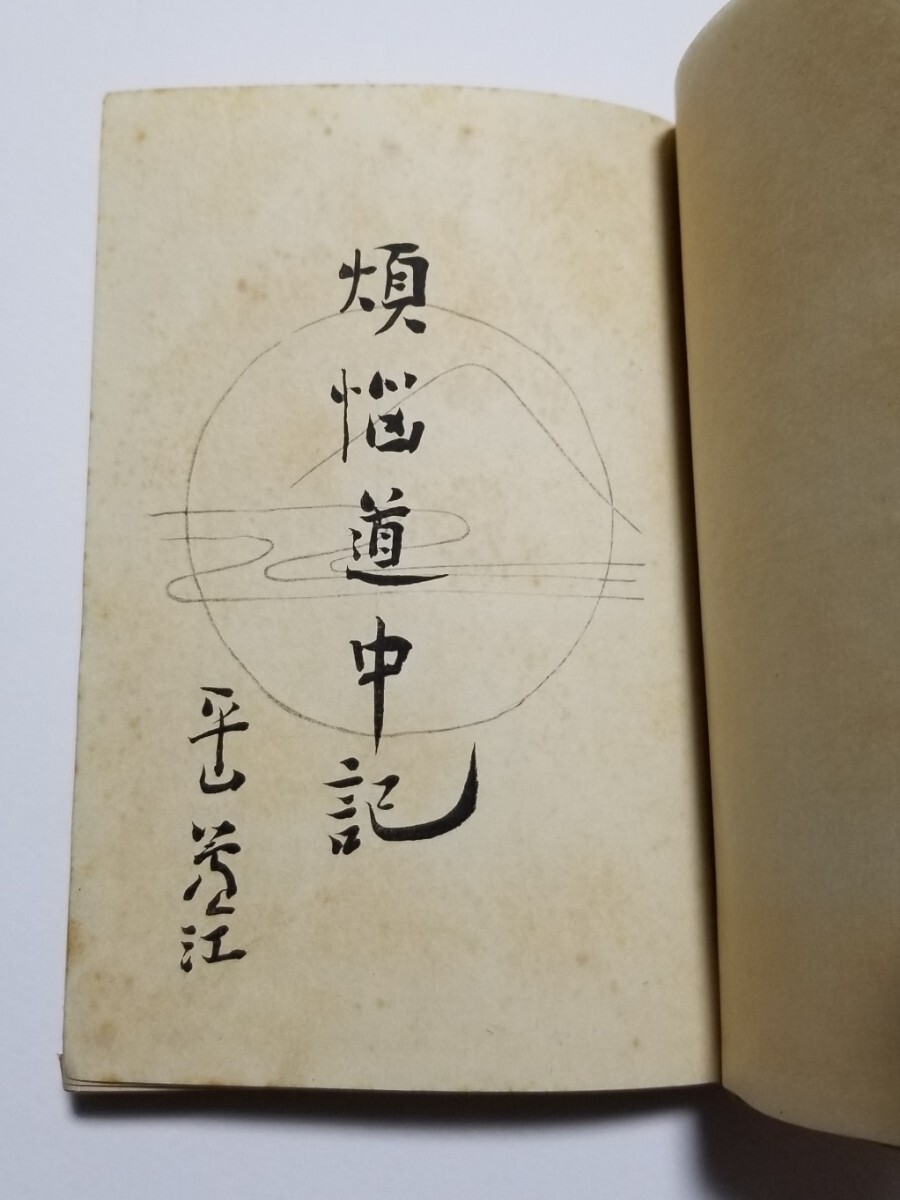 煩悩道中記
平山蘆江